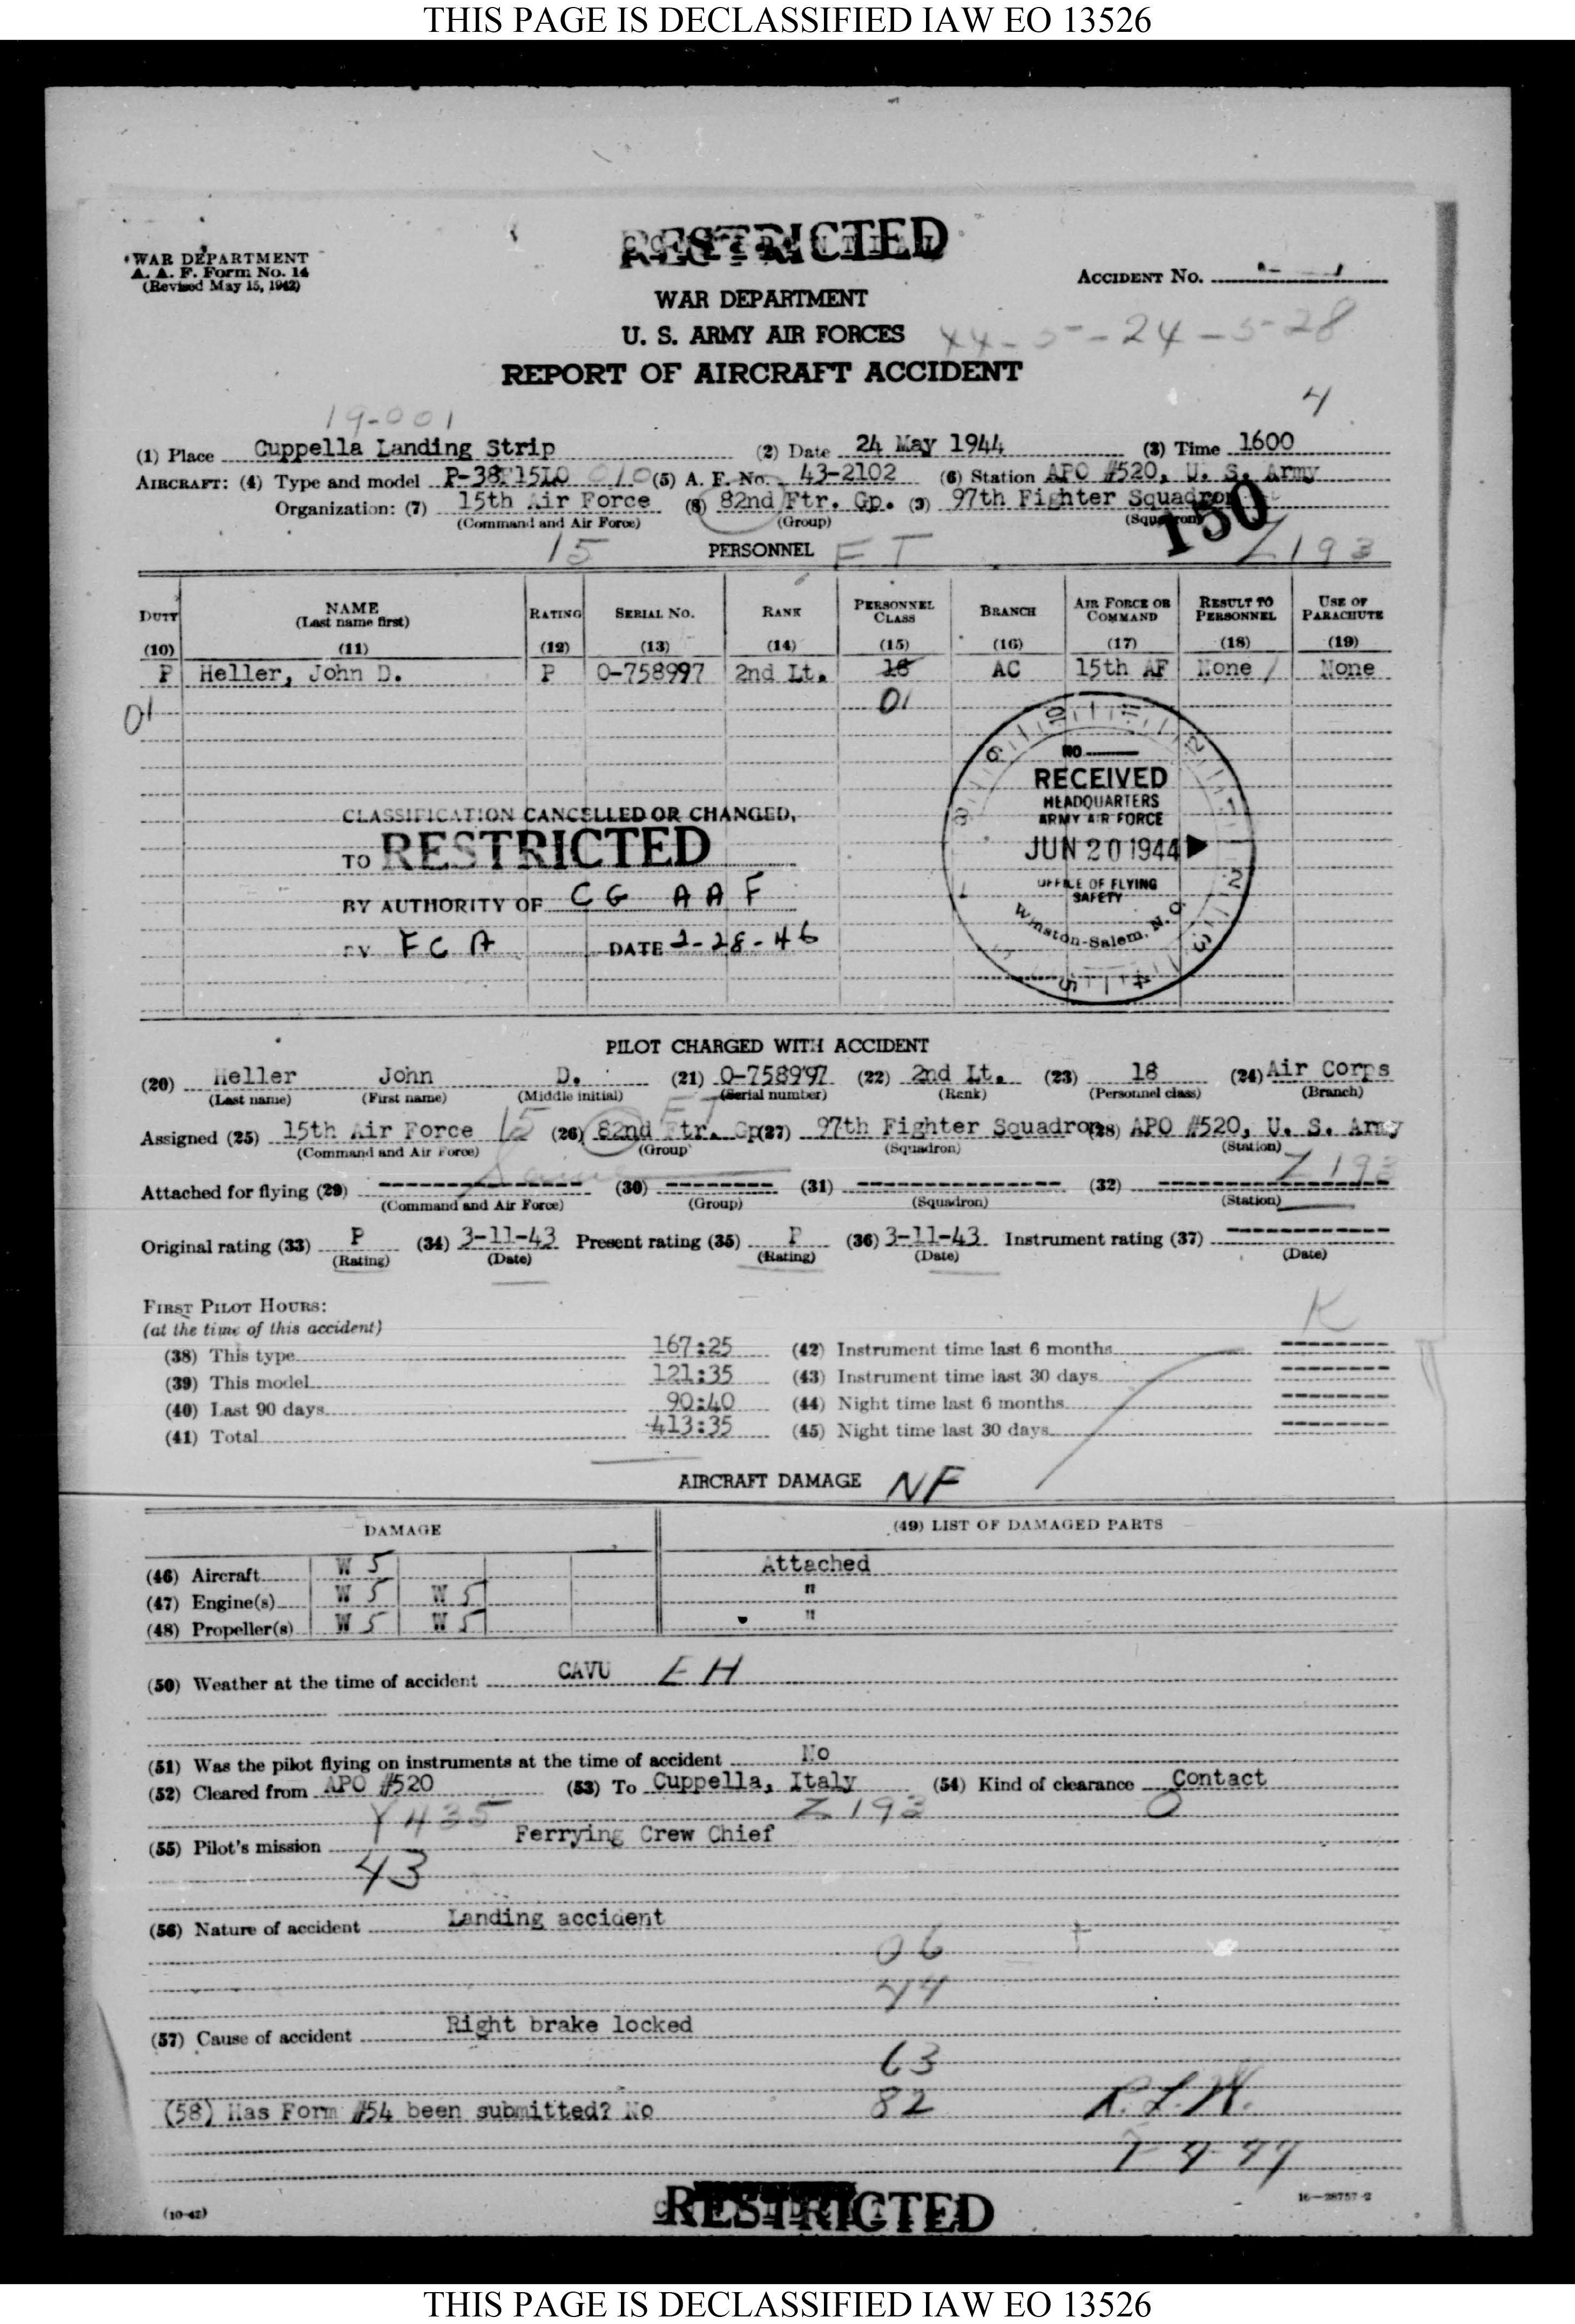 THIS PAGE IS DECLASSIFIED IAW EO 13526
RESTRICTED
WAR DEPARTMENT
A. A. F. Form No. 14
(Revised May 15, 1942)
ACCIDENT No.
WAR DEPARTMENT
U. S. ARMY AIR FORCES
44-5-24-528
REPORT OF AIRCRAFT ACCIDENT
19-001
4
(1) Place Cuppella Landing Strip (2) Date 24 May 1944 (3) Time 1600
AIRCRAFT: (4) Type and model P-38F15LO 010 (5) A. F. No. 43-2102 (6) Station APO #520, U. S. Army
Organization: (7) 15th Air Force (8) 82nd Ftr. Gp. (9) 97th Fighter Squadron
(Command and Air Force) (Group) (Squadron)
150
15 PERSONNEL FT Z193
DUTY NAME (Last name first) RATING SERIAL NO. RANK PERSONNEL CLASS BRANCH AIR FORCE OR COMMAND RESULT TO PERSONNEL USE OF PARACHUTE
(10) (11) (12) (13) (14) (15) (16) (17) (18) (19)
P Heller, John D. P O-758997 2nd Lt. 18 AC 15th AF None None
01 01
NO
RECEIVED
HEADQUARTERS
ARMY AIR FORCE
JUN 20 1944
OFFICE OF FLYING
SAFETY
Winston-Salem, N. C.
CLASSIFICATION CANCELLED OR CHANGED,
TO RESTRICTED
BY AUTHORITY OF CG AAF
BY FCA DATE 2-28-46
PILOT CHARGED WITH ACCIDENT
(20) Heller John D. (21) O-758997 (22) 2nd Lt. (23) 18 (24) Air Corps
(Last name) (First name) (Middle initial) (Serial number) (Rank) (Personnel class) (Branch)
Assigned (25) 15th Air Force 15 (26) 82nd Ftr. Gp (27) 97th Fighter Squadron (28) APO #520, U. S. Army
(Command and Air Force) (Group) (Squadron) (Station)
Z193
Attached for flying (29) (30) (31) (32)
(Command and Air Force) (Group) (Squadron) (Station)
Original rating (33) P (34) 3-11-43 Present rating (35) P (36) 3-11-43 Instrument rating (37)
(Rating) (Date) (Rating) (Date) (Date)
FIRST PILOT HOURS:
K
(at the time of this accident)
(38) This type 167:25 (42) Instrument time last 6 months
(39) This model 121:35 (43) Instrument time last 30 days
(40) Last 90 days 90:40 (44) Night time last 6 months
(41) Total 413:35 (45) Night time last 30 days
AIRCRAFT DAMAGE NF
DAMAGE (49) LIST OF DAMAGED PARTS
(46) Aircraft W 5 Attached
(47) Engine(s) W 5 W 5 "
(48) Propeller(s) W 5 W 5 "
(50) Weather at the time of accident CAVU EH
(51) Was the pilot flying on instruments at the time of accident No
(52) Cleared from APO #520 (53) To Cuppella, Italy (54) Kind of clearance Contact
Y435 Z193 0
(55) Pilot's mission Ferrying Crew Chief
43
(56) Nature of accident Landing accident
06
44
(57) Cause of accident Right brake locked
63
82
(58) Has Form #54 been submitted? No
RESTRICTED
(10-42)
16—28757-2
THIS PAGE IS DECLASSIFIED IAW EO 13526